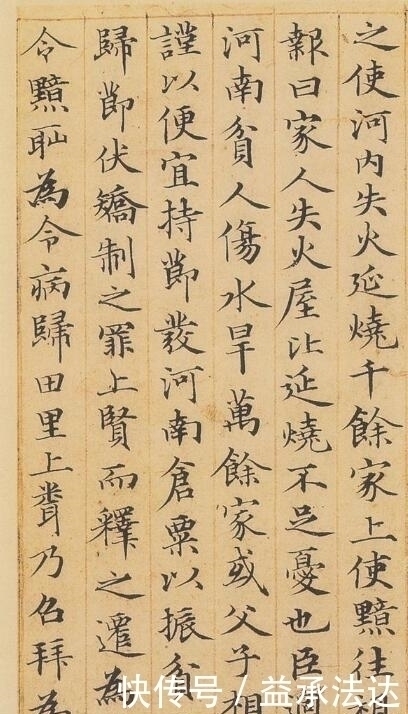 之使河内失火延燒千餘家上使黯往
報曰家人失火屋比延燒不足憂也臣過
河南貧人傷水旱萬餘家或父子相
謹以便宜持節發河南倉粟以振貧
歸節伏矯制之罪上賢而釋之遷為
令黯耻為令病歸田里上聞乃召拜為
快传号 / 益承法达